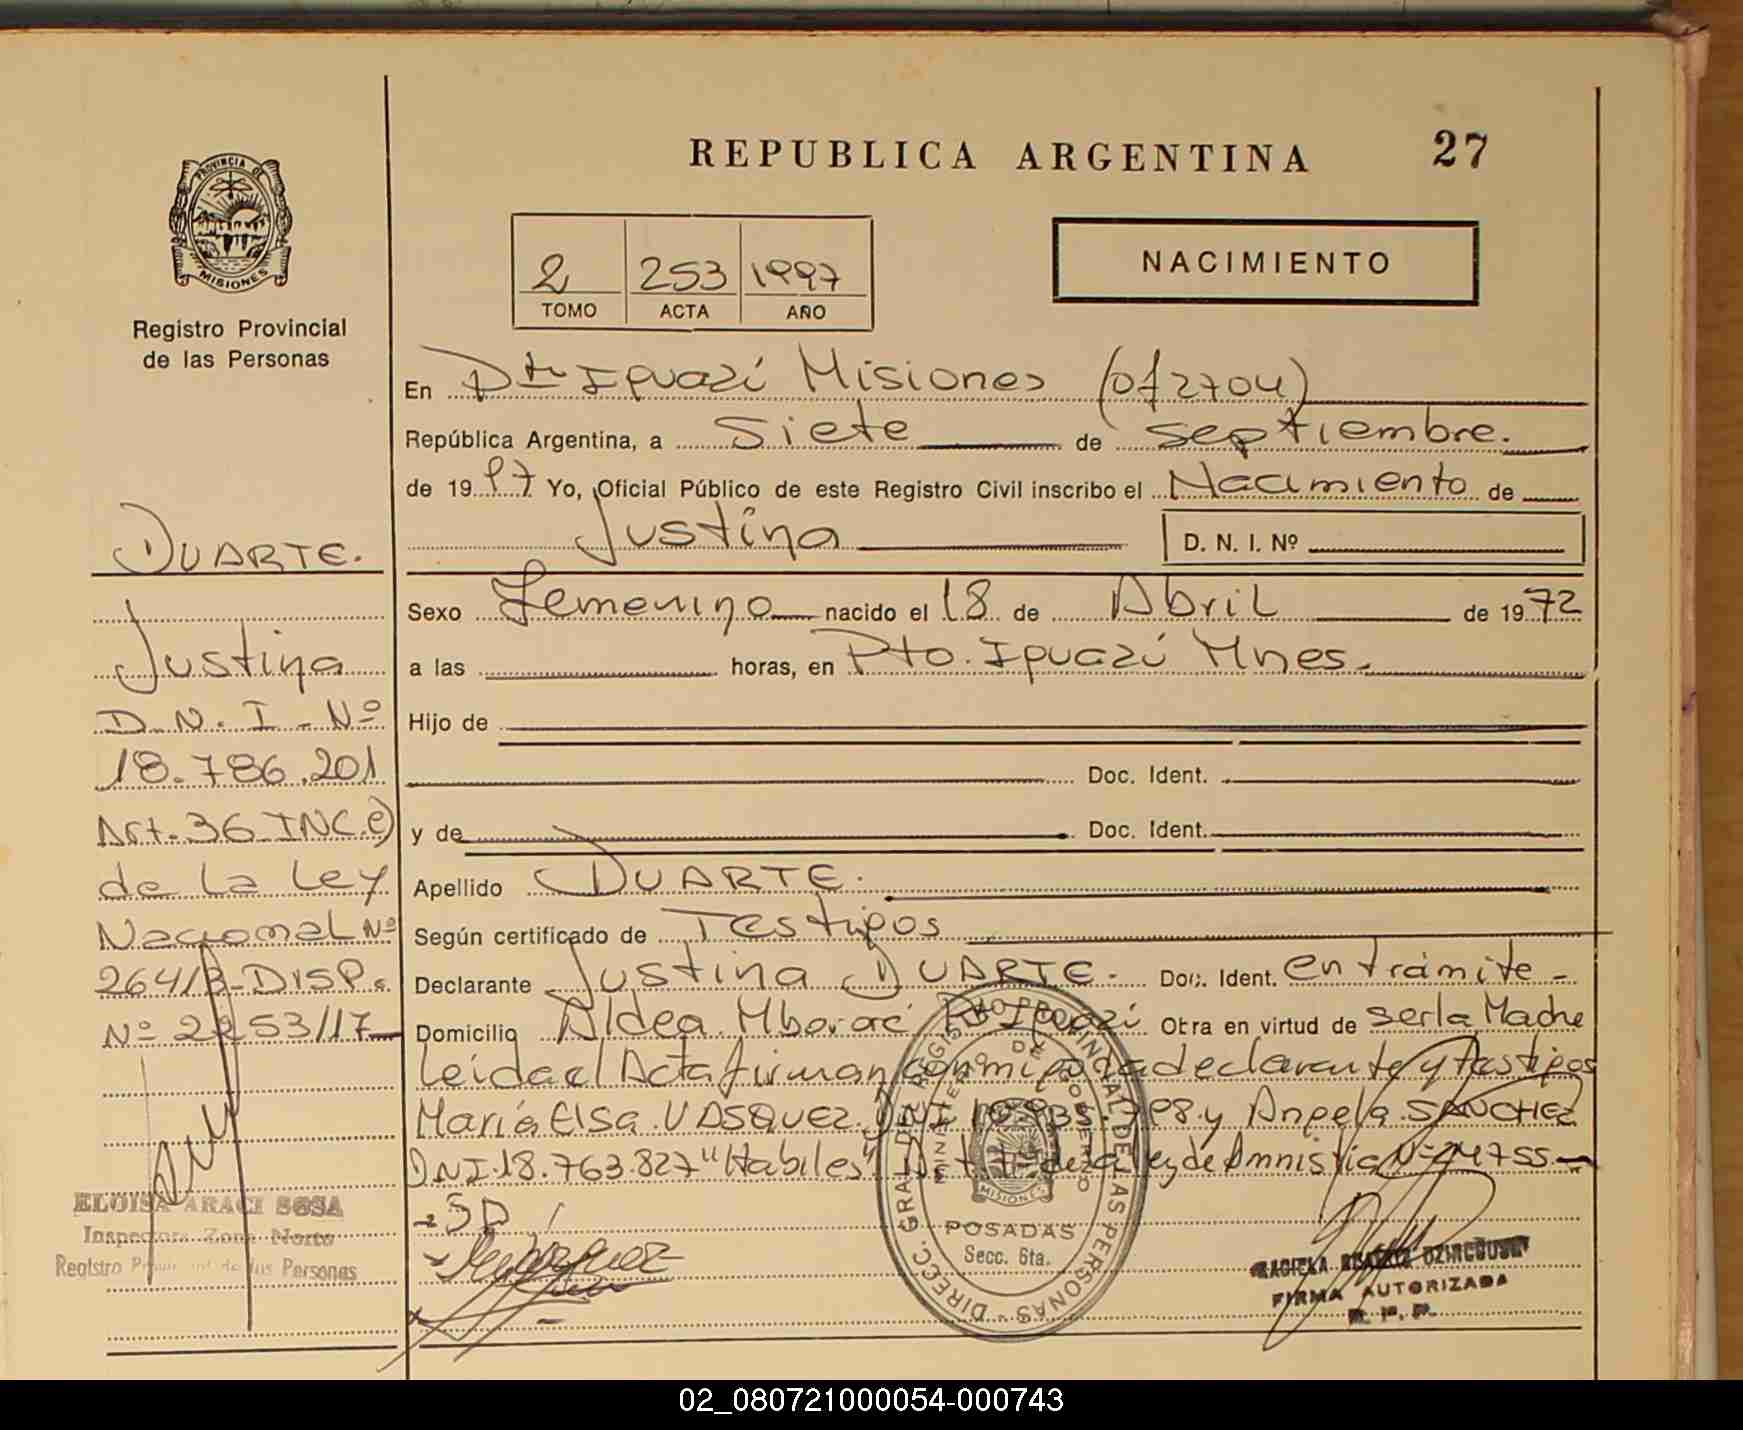 REPUBLICA ARGENTINA
27
PROVINCIA DE
MISIONES
Registro Provincial
de las Personas
2 253 1997
TOMO ACTA AÑO
NACIMIENTO
En Pto Iguazú Misiones (of 2704)
República Argentina, a Siete de septiembre.
de 1997 Yo, Oficial Público de este Registro Civil inscribo el Nacimiento de
Justina D. N. I. Nº
Sexo Femenino nacido el 18 de Abril de 1972
a las horas, en Pto. Iguazú Mnes.
Hijo de
Doc. Ident.
y de Doc. Ident.
Apellido DUARTE.
Según certificado de Testigos
Declarante Justina DUARTE. Doc. Ident. en trámite -
Domicilio Aldea Mbororé Pto Iguazú Otra en virtud de ser la Madre
Leída el Acta firman conmigo la declarante y testigos
María Elsa VASQUEZ DNI y Angela SANCHEZ
DNI 18.763.827 "Habiles" de la ley de Amnistia
DUARTE.
Justina
D.N.I. Nº
18.786.201
Art. 36 INC e)
de la Ley
Nacional Nº
26413 - DISP.
Nº 2253/17
ELOISA ARACI SOSA
Inspectora Zona Norte
Registro Provincial de las Personas
DIRECC. GRAL. DE REGISTRO PROVINCIAL DE LAS PERSONAS
MINISTERIO DE GOBIERNO
MISIONES
POSADAS
Secc. 6ta.
FIRMA AUTORIZADA
R. P. P.
02_080721000054-000743